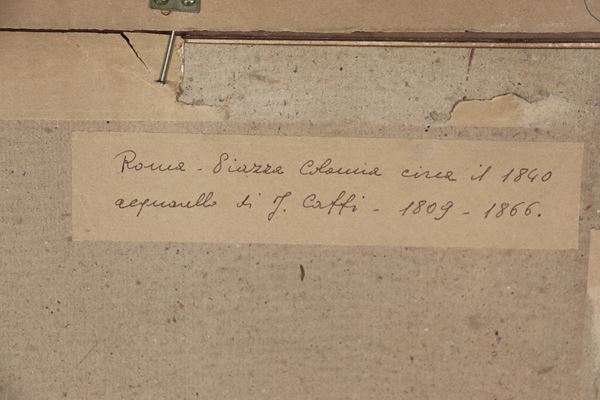 Roma - Piazza Colonna circa il 1840
acquarello di J. Caffi - 1809 - 1866.